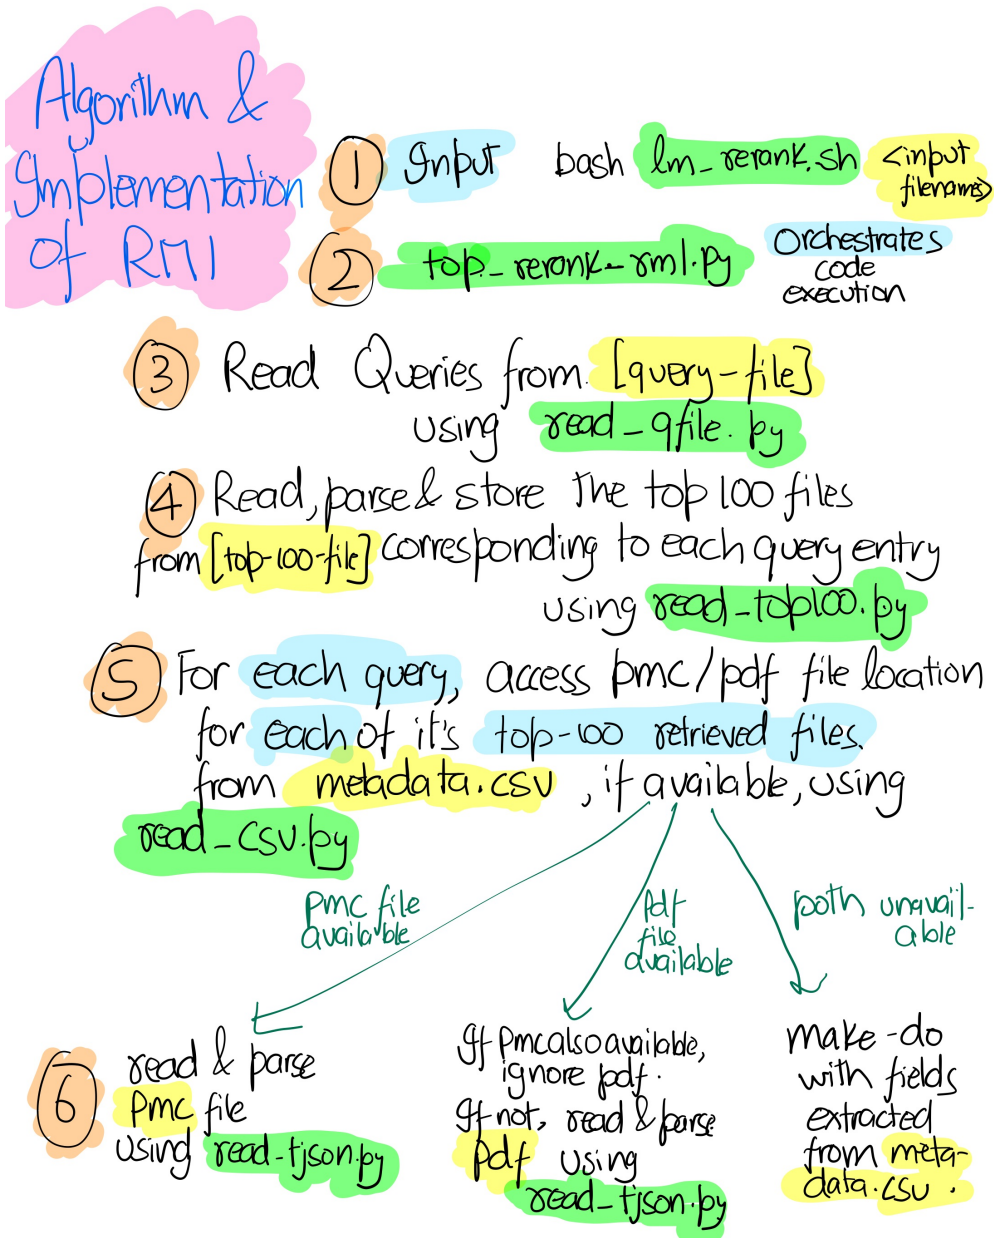 Algorithm &
Implementation
of RM1
1 Input bash lm_rerank.sh <input
filenames>
2 top_rerank_rm1.py Orchestrates
code
execution
3 Read Queries from [query-file]
using read_qfile.py
4 Read, parse & store the top 100 files
from [top-100-file] corresponding to each query entry
using read_top100.py
5 For each query, access pmc/pdf file location
for each of it's top-100 retrieved files.
from metadata.csv, if available, using
read_csv.py
pmc file
available
pdf
file
available
both unavail-
able
6
read & parse
pmc file
using read_tjson.py
If pmc also available,
ignore pdf.
If not, read & parse
pdf using
read_tjson.py
make-do
with fields
extracted
from meta-
data.csv.